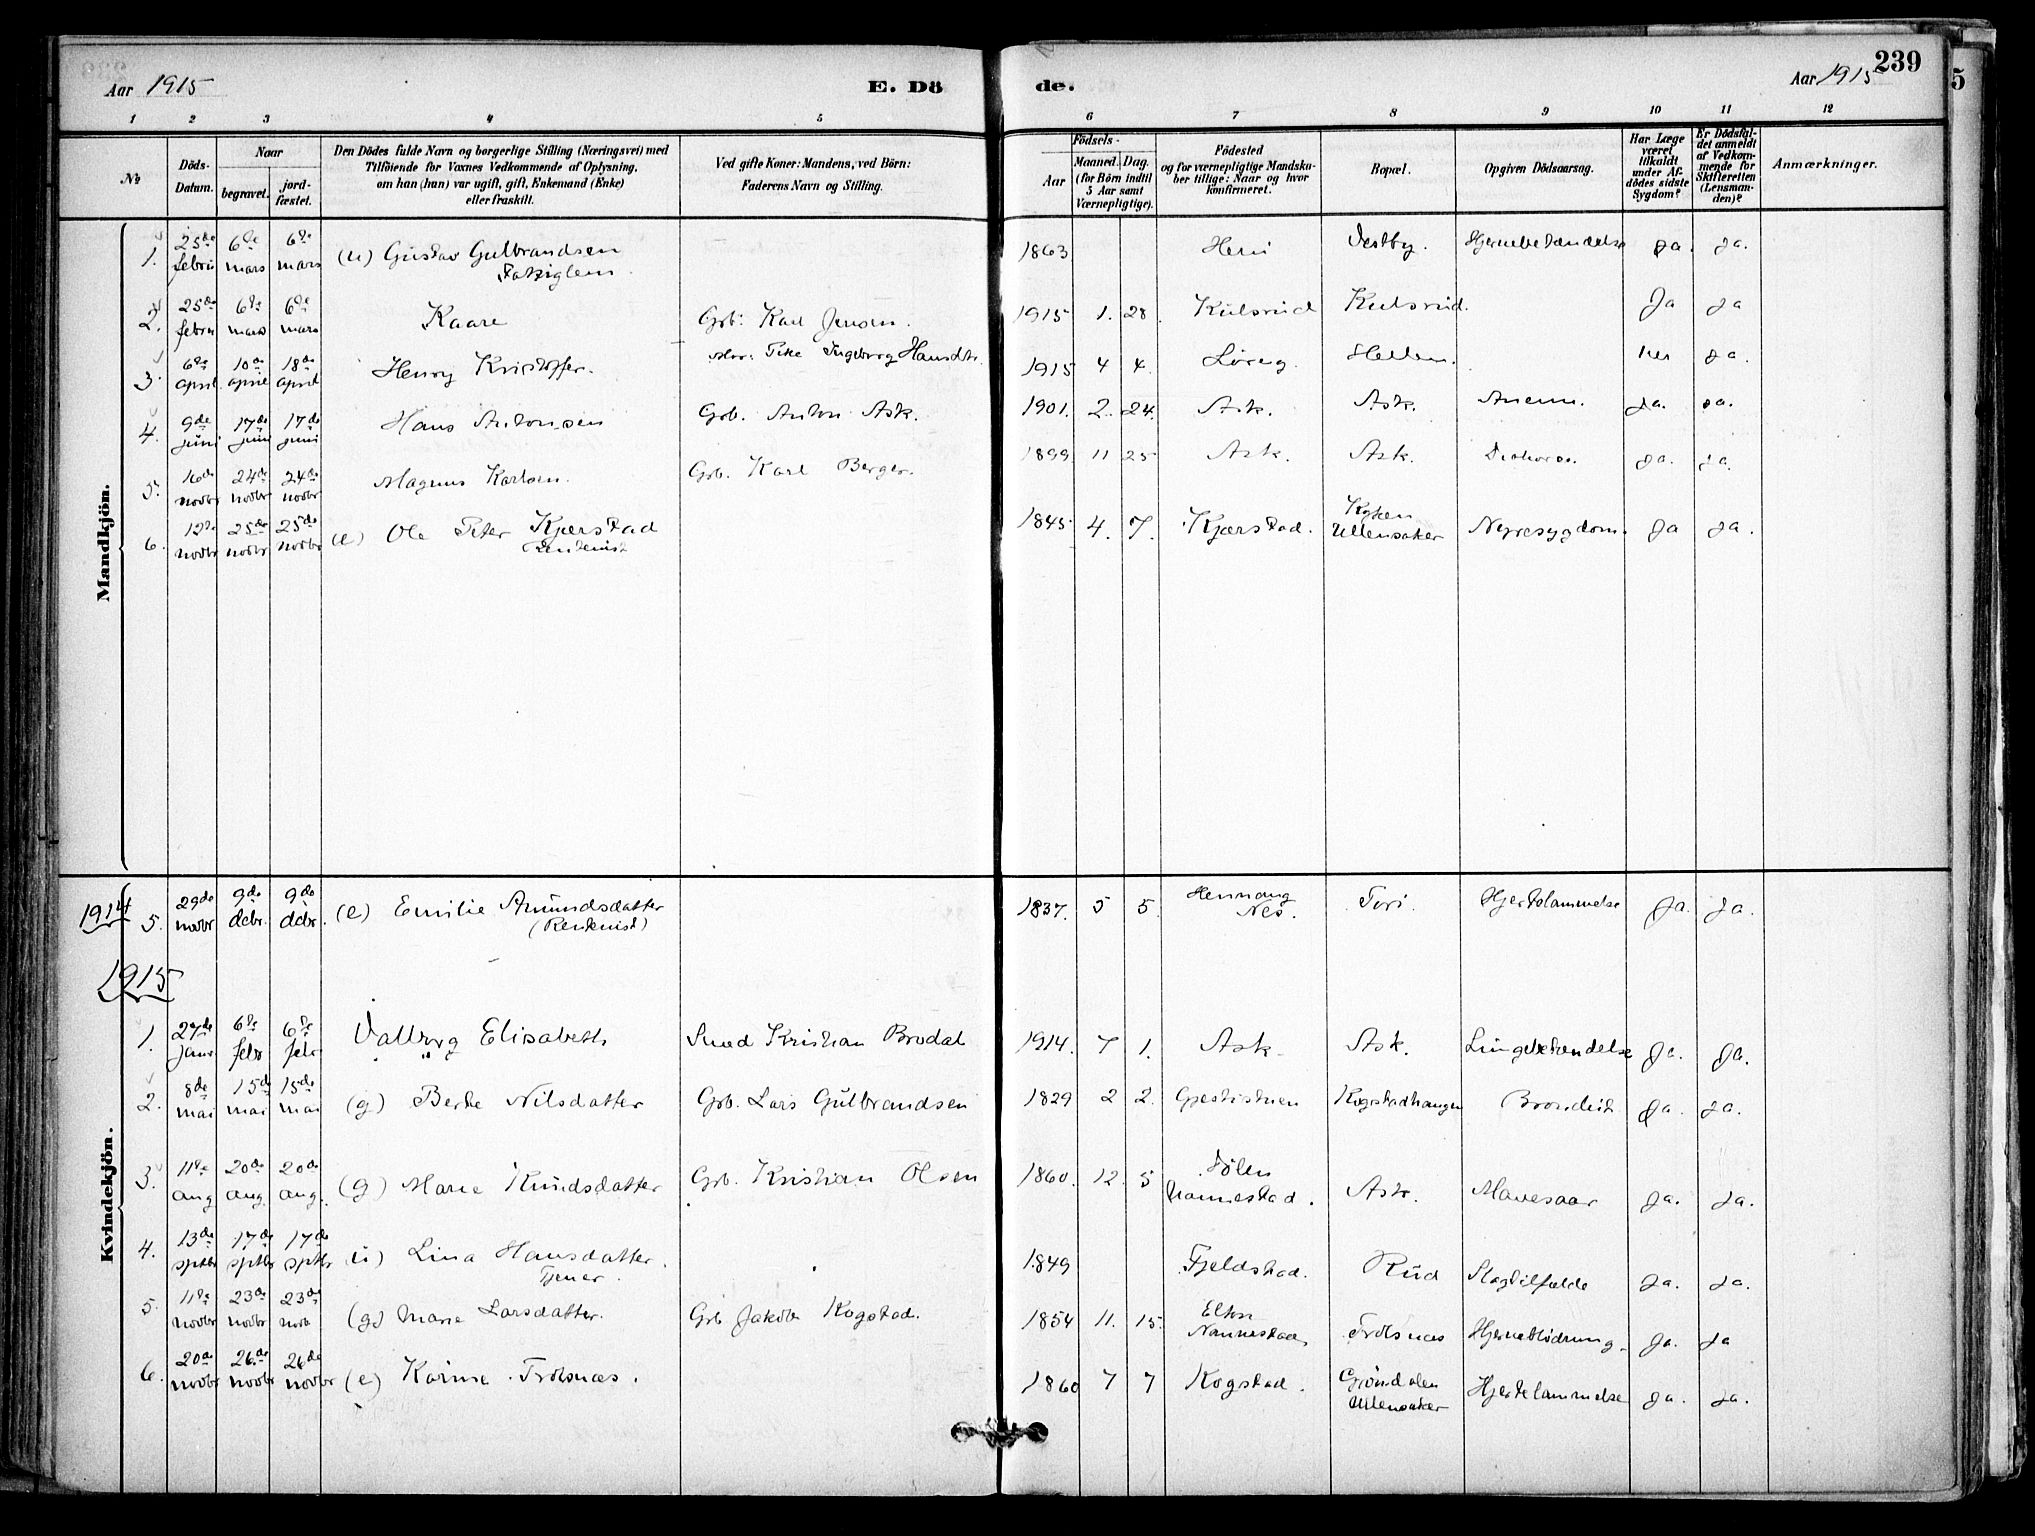 239
Aar 1915
E. Dö de.
Aar 1915
1 2 3 4 5 6 7 8 9 10 11 12
№
Döds-Datum.
Naar
begravet.
jord-fæstet.
Den Dödes fulde Navn og borgerlige Stilling (Næringsvei) med
Tilföiende for Voxnes Vedkommende af Oplysning,
om han (hun) var ugift, gift, Enkemand (Enke)
eller fraskilt.
Ved gifte Koner: Mandens, ved Börn:
Faderens Navn og Stilling.
Födsels-
Aar
Maaned. Dag.
(for Börn indtil
5 Aar samt
Værnepligtige).
Födested
og for værnepligtige Mandska-
ber tillige: Naar og hvor
konfirmeret.
Bopæl.
Opgiven Dödsaarsag.
Har Læge
været
tilkaldt
under Af-
dødes sidste
Sygdom?
Er Dödsfal-
det anmeldt
af Vedkom-
mende for
Skifteretten
(Lensman-
den)?
Anmærkninger.
Mandkjön.
1. 25de febru 6te mars 6te mars (u) Gustav Gulbrandsen 1863 Heni Vestby. Hjernebetændelse ja. ja.
2. 25de febru 6te mars 6te mars Kaare Grb: Karl Jensen. 1915 1. 28. Kulsrud Kulsrud. Ja ja
3. 6te april 10de april 18de april Henry Kristoffer. Mor: Ingeborg Hansdtr. 1915 4 4. Løreng ja.
4. 9de juni 17de juni 17de juni Hans Antonsen Grb. Anton Ask. 1901. 2. 24. Ask. Ask. ja. ja.
5. 16de novbr 24de novbr 24de novbr Magnus Karlsen. Grb. Karl Berger. 1899 11 25 Ask. Ask. ja. ja.
6. 12te novbr 25de novbr 25de novbr (e) Ole Peter Kjærstad 1845 4. 7. Kjærstad. Ullensaker Nyresygdom. ja ja.
Rentenist
Kvindekjön.
1914 5. 29de novbr 9de debr. 9de debr. (e) Emilie Amundsdatter 1837. 5 5. Hennaug Nes. Tori. Hjertelammelse ja. ja.
(Rentenist)
1915
1. 27de janr 6te febr 6te febr Valborg Elisabeth Smed Kristian Brodal 1914. 7 1. Ask. Ask. Lungebetændelse ja. ja.
2. 8de mai 15de mai 15de mai (g) Berte Nilsdatter Grb. Lars Gulbrandsen 1829 2 2. Gjestistuen Kogstadhaugen Bronkit ja. ja.
3. 11te aug 20de aug. 20de aug. (g) Marie Knudsdatter Grb. Kristian Olsen 1860. 12. 5 Nannestad. Ask. Mavesaar ja. ja.
4. 13de sptbr 17de sptbr 17de sptbr (u) Lina Hansdatter. 1849 Fjeldstad. Rud Slagtilfælde ja. ja.
Tjener.
5. 11te novbr 23de novbr 23de novb (g) Marie Larsdatter. Grb Jakob Kogstad. 1854 11. 15. Nannestad Trolsnæs Hjerneblødning. ja. ja
6. 20de novbr 26de novbr 26de novbr (e) Karine Trolsnæs. 1860 7 7 Kogstad. Grøndalen Ullensaker Hjertelammelse ja. ja.